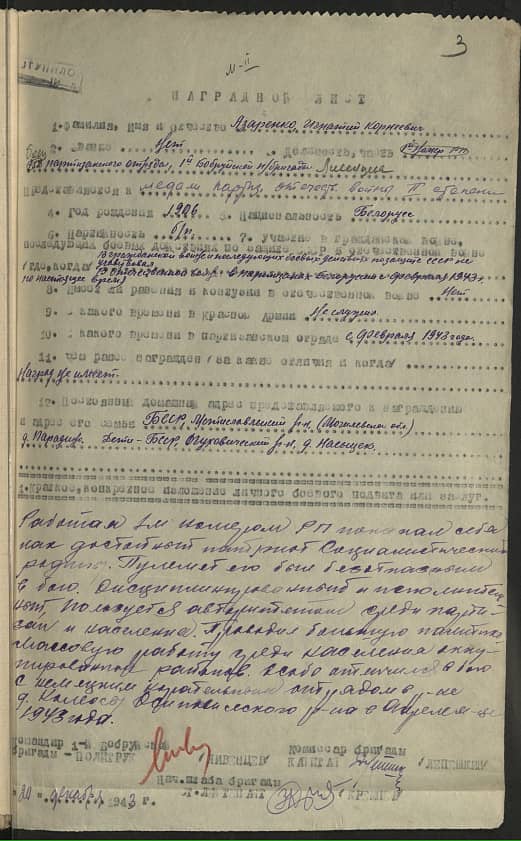 3
М-II
НАГРАДНОЙ ЛИСТ
1. Фамилия, имя и отчество Азаренко Игнатий Корнеевич
2. Звание Нет 3. Должность, часть 1й номер РП
партизанского отряда, 1й Бобруйской п/бригады
Представляется к медали партиз. отечеств. войны II степени
4. Год рождения 1906 5. Национальность Белорус
6. Партийность б/п. 7. Участие в гражданской войне,
последующих боевых действиях по защите СССР в отечественной войне
/где, когда/ В гражданской войне и последующих боевых действ. по защите СССР не
участвовал
В Отечественной войне в партизанах Белоруссии с февраля 1943 г.
по настоящее время
8. Имеет ли ранения и контузии в отечественной войне Нет
9. С какого времени в Красной Армии Не служил
10. С какого времени в партизанском отряде с февраля 1943 года.
11. Чем ранее награжден /за какие отличия и когда/
Наград не имеет.
12. Постоянный домашний адрес представляемого к награждению
и адрес его семьи БССР, Мстиславльский р-н (Могилевская обл)
д. Парадино. Дети - БССР, р-н, д.
1. Краткое, конкретное изложение личного боевого подвига или заслуг.
Работая 1м номером РП показал себя
как достойный патриот Социалистической
родины. Пулемет его был безотказным
в бою. Дисциплинированный и исполнитель-
ный, пользуется авторитетом среди парти-
зан и населения. Проводил большую политико
массовую работу среди населения окку-
пированных районов. Особо отличился в бою
с немецким карательным отрядом в р-не
д. Колеосы Осиповичского р-на в Апреле м-це
1943 года.
Командир 1-й Бобруйской Комиссар бригады
бригады - ПОЛИТРУК ЛИВЕНЦЕВ КАПИТАН ЛЕПЕШКИН
Нач. штаба бригады
Л-ЛЕЙТЕНАНТ КРЕМНЕВ
20 декабря 1943 г.